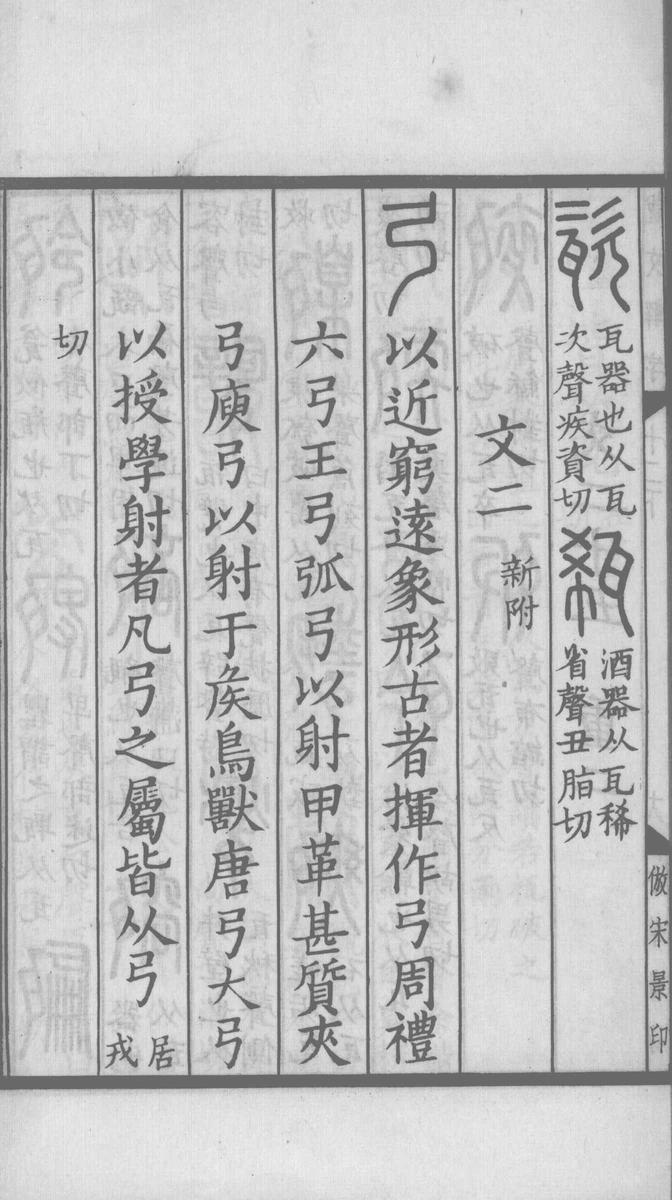 瓷瓦器也从瓦
次聲疾資切
瓻酒器从瓦稀
省聲丑脂切
文二新附
弓以近窮遠象形古者揮作弓周禮
六弓王弓弧弓以射甲革甚質夾
弓庾弓以射干矦鳥獸唐弓大弓
以授學射者凡弓之屬皆从弓居戎
切
倣宋景印